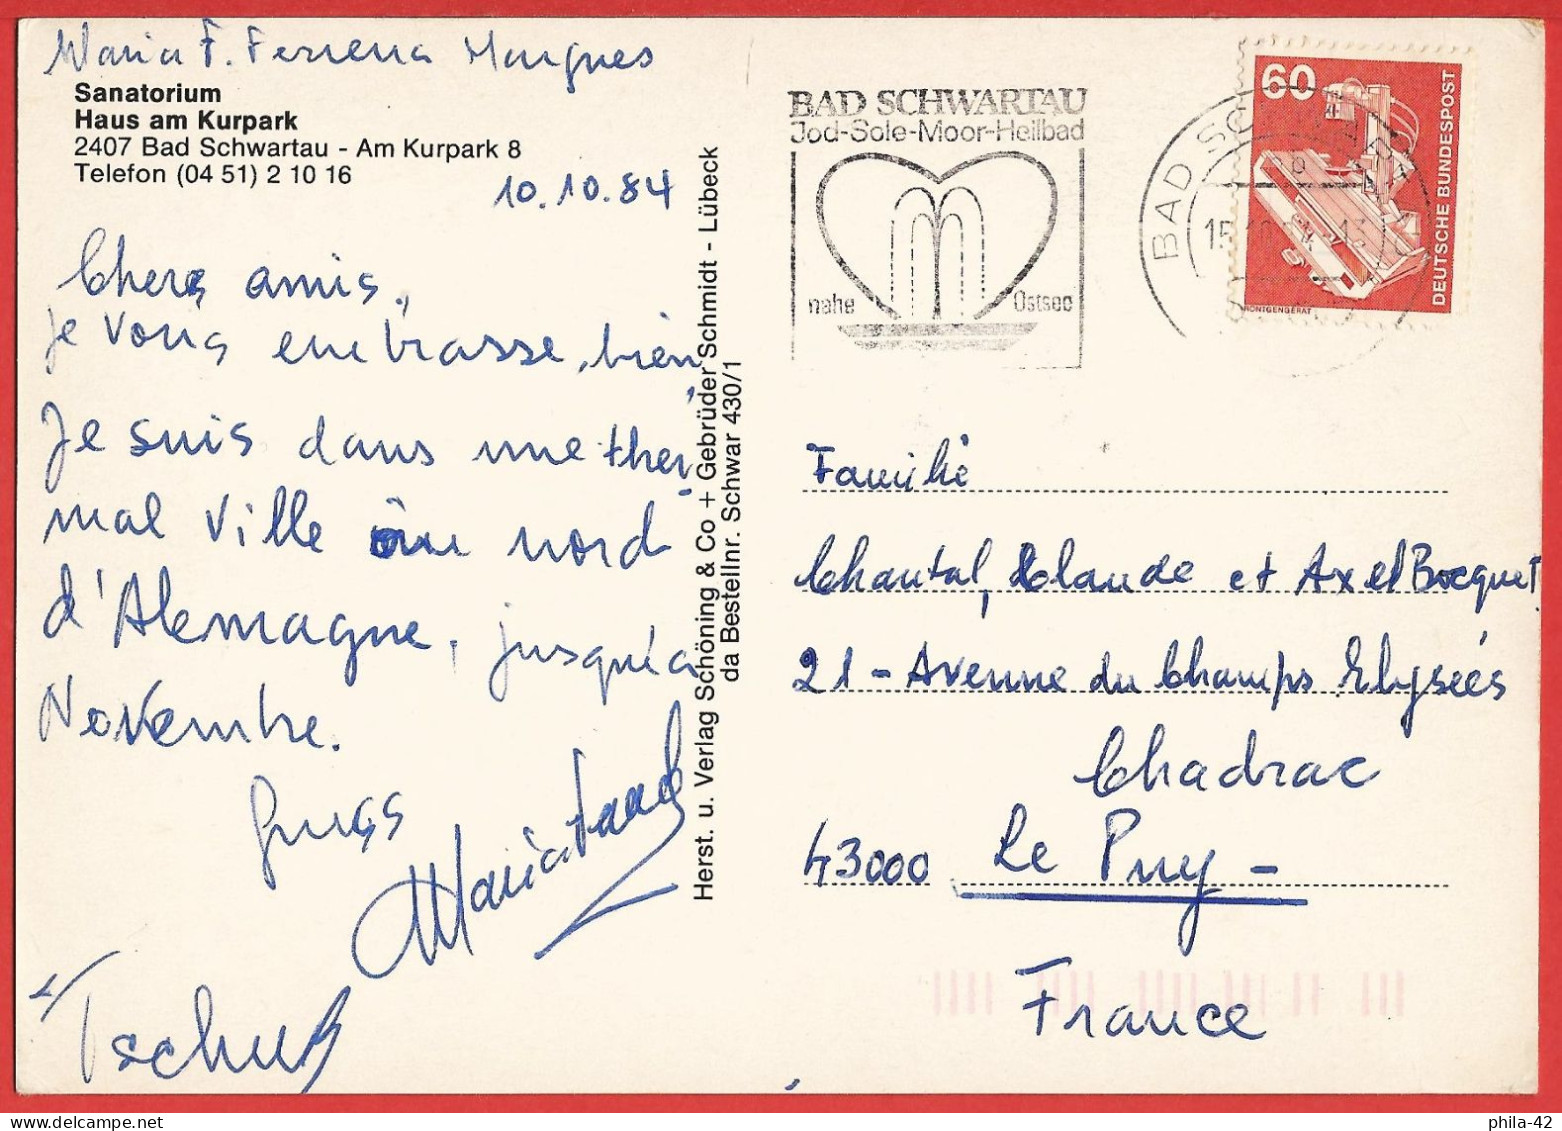 Maria F. Ferreira Marques
Sanatorium
Haus am Kurpark
2407 Bad Schwartau - Am Kurpark 8
Telefon (04 51) 2 10 16
10.10.84
Chers amis,
je vous embrasse, bien
Je suis dans une ther
mal ville au nord
d'Alemagne, jusqu'a
Novembre.
Tschuß
Herst. u. Verlag Schöning & Co + Gebrüder Schmidt - Lübeck
da Bestellnr. Schwar 430/1
BAD SCHWARTAU
Jod-Sole-Moor-Heilbad
nahe Ostsee
BAD SCHWARTAU
60
DEUTSCHE BUNDESPOST
RÖNTGENGERÄT
Famille
Chantal, Claude et Axel Bocquet
21 - Avenue du Champs Elysées
Chadrac
43000 Le Puy -
France
phila-42